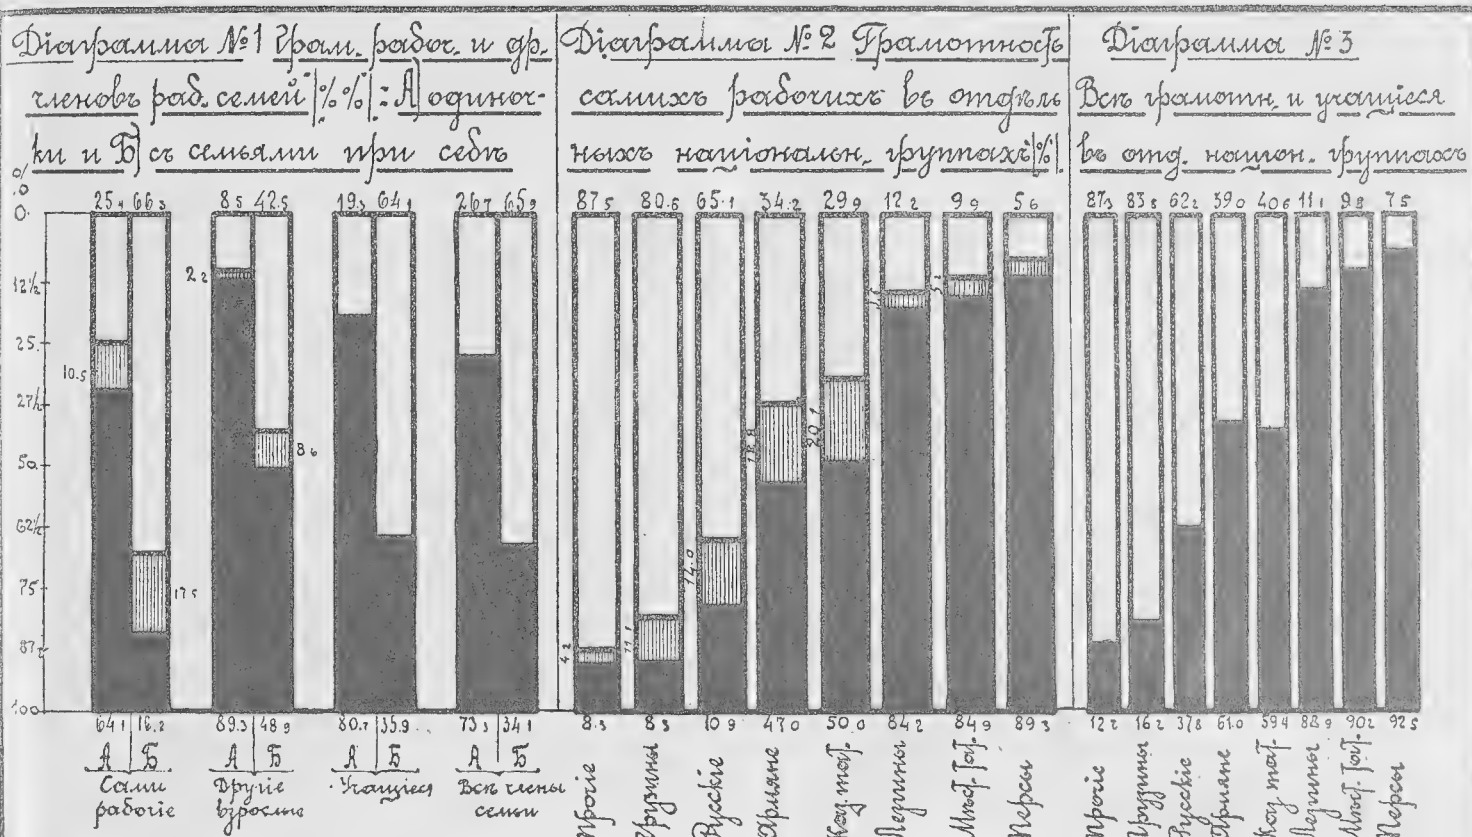 Діаграмма №1 Грам. рабоч. и др.
членовъ раб. семей |%%|: А) одиноч-
ки и Б) съ семьями при себѣ
%
0.
12½
25.
27½
50.
62½
75
87½
100
25.4 66.3 8.5 42.5 19.3 64.1 26.7 65.9
10.5
17.5
2.2
8.6
64.1 16.2 89.3 48.9 80.7 35.9 73.3 34.1
А Б А Б А Б А Б
Сами рабочіе
Другіе взрослые
Учащіеся
Всѣ члены семьи
Діаграмма № 2 Грамотность
самихъ рабочихъ въ отдѣль
ныхъ національн. группахъ |%|
87.5 80.6 65.1 34.2 29.9 12.2 9.9 5.6
4.2
11.1
14.0
18.8
20.1
3.6
5.2
8.3 8.3 10.9 47.0 50.0 84.2 84.9 89.3
Прочіе
Грузины
Русскіе
Армяне
Каз. тат.
Лезгины
Мѣст. Тат.
Персы
Діаграмма № 3
Всѣ грамотн. и учащіеся
въ отд. национ. группахъ
87.3 83.8 62.2 39.0 40.6 11.1 9.8 7.5
12.7 16.2 37.8 61.0 59.4 88.9 90.2 92.5
Прочіе
Грузины
Русскіе
Армяне
Каз. тат.
Лезгины
Мѣст. Тат.
Персы